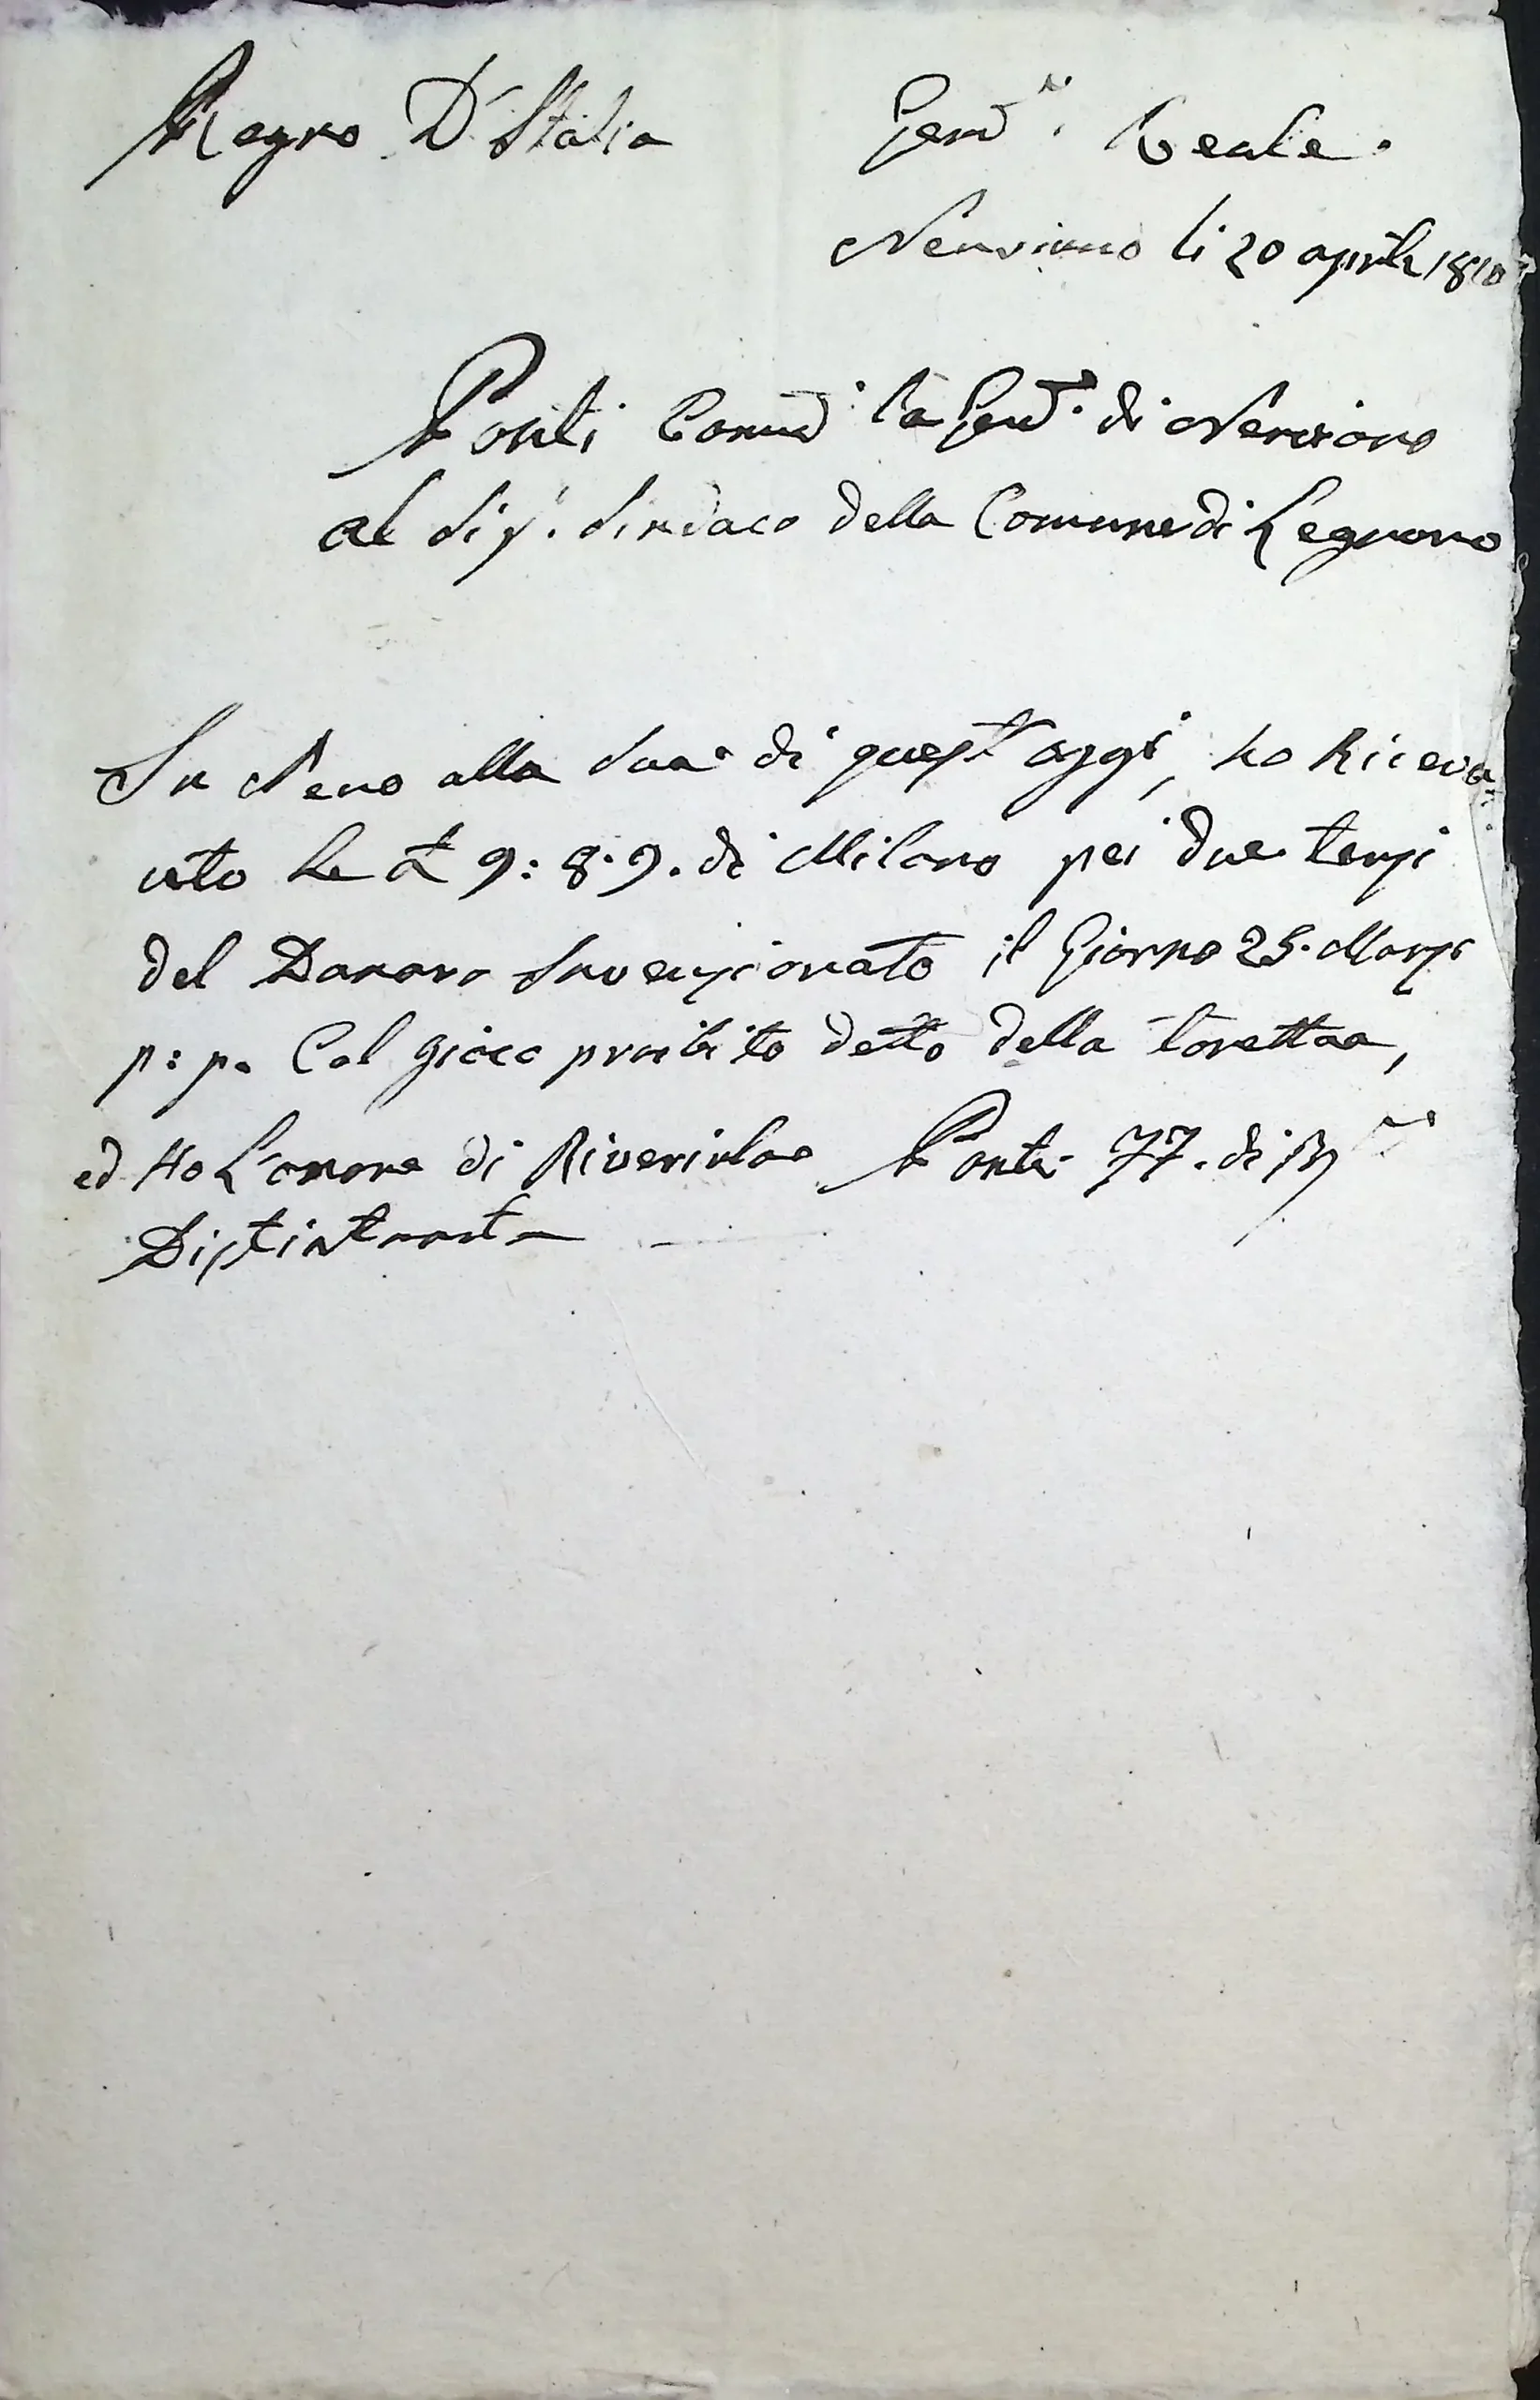 Regno D'Italia
Gend.ª Reale.
Nerviano li 20 aprile 1810
Ponti Comd: la Gend.ª di Nerviano
al Sig.r Sindaco della Comune di Legnano
In Seno alla Sua di quest oggi, ho Riceva
uto Le £ 9: 8: 9. di Milano pei due terzi
del Danaro Invenzionato il Giorno 25. Marzo
p: p. Col gioco proibito detto della torettaa,
ed Ho L'onore di Riverirla
Distintamente
Ponti